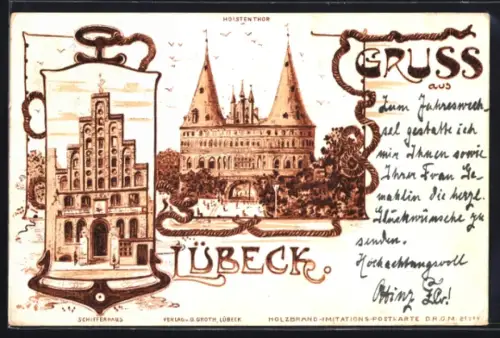 HOLSTENTHOR
GRUSS
aus
LÜBECK.
Zum Jahreswech-
sel gestatte ich
mir Ihnen sowie
Ihrer Frau Ge-
mahlin die herzl.
Glückwünsche zu
senden.
Hochachtungsvoll
SCHIFFERHAUS
VERLAG v. G. GROTH, LÜBECK
HOLZBRAND-IMITATIONS-POSTKARTE D.R.G.M.